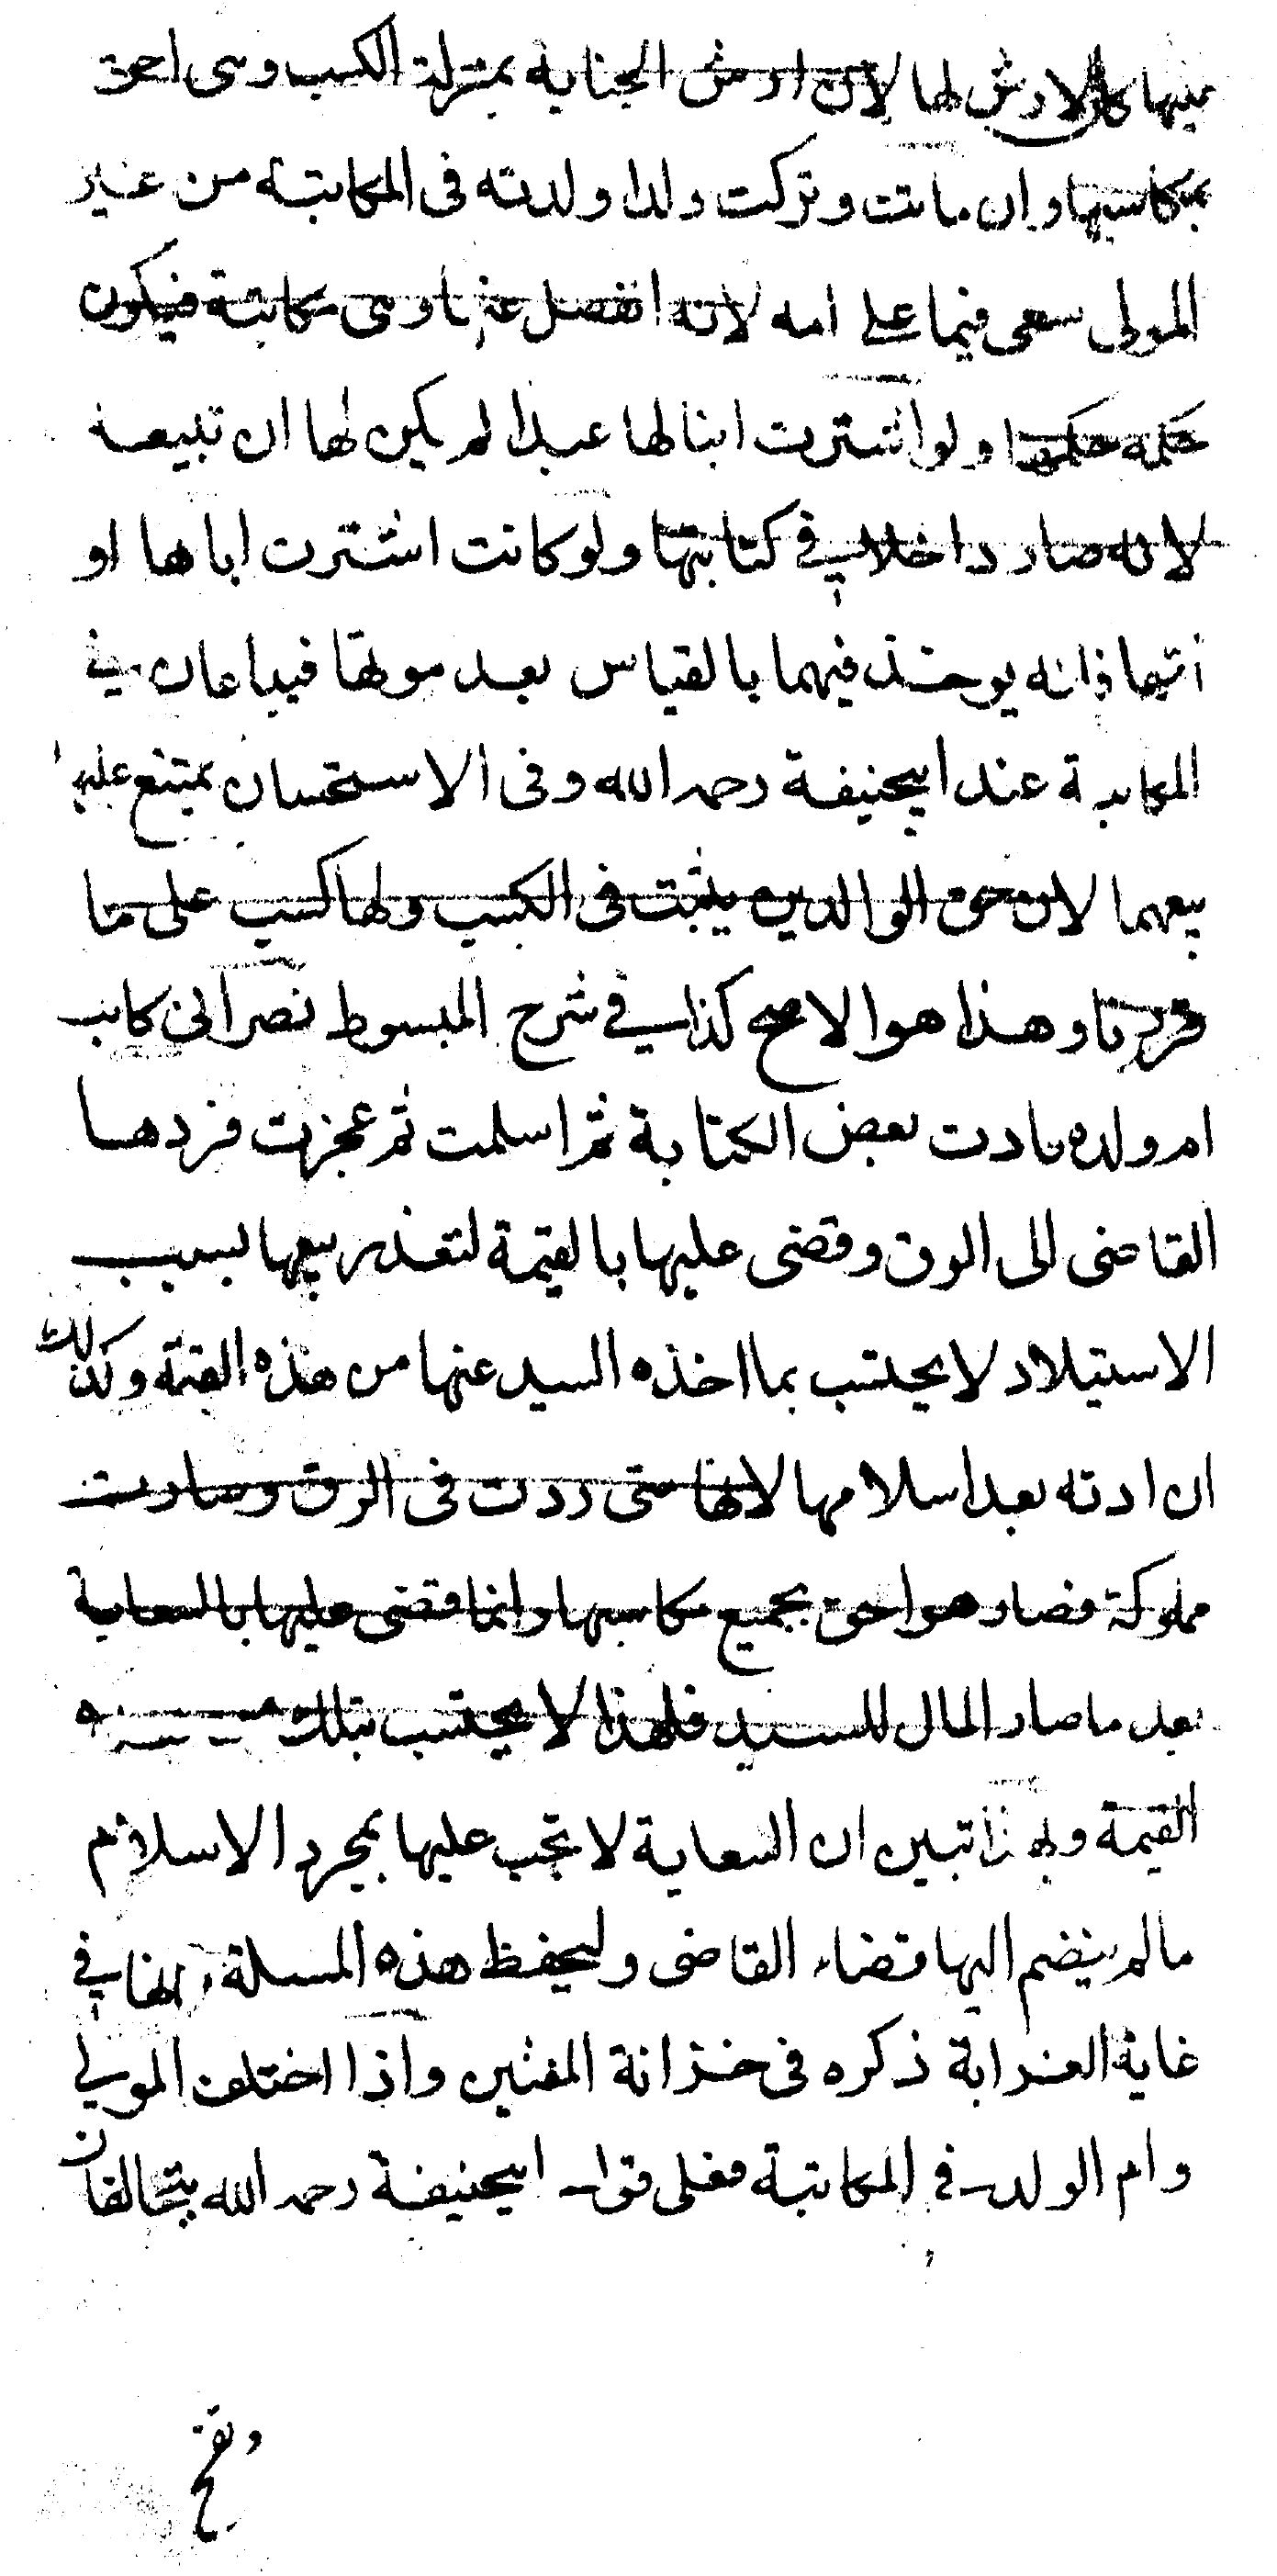 عليها كان الارش لها لان ارش الجناية بمنزلة الكسب وهى احق
بمكاسبها وان ماتت وتركت ولدا ولدته فى المكاتبة من غير
المولى سعى فيما على امه لانه انفصل عنها وهى مكاتبة فيكون
حكمه حكمها ولو اشترت ابنا لها عبدا لم يكن لها ان تبيعه
لانه صار داخلا في كتابتها ولو كانت اشترت اباها او
امها فانه يوخذ فيهما بالقياس بعد موتها فيباعان في
المكاتبة عند ابيحنيفة رحمه الله وفى الاستحسان يمتنع عليها
بيعهما لان حق الوالدين يثبت فى الكسب ولها كسب على ما
قررنا وهذا هو الاصح كذا في شرح المبسوط نصرانى كاتب
ام ولده فادت بعض الكتابة ثم اسلمت ثم عجزت فردها
القاضى الى الرق وقضى عليها بالقيمة لتعذر بيعها بسبب
الاستيلاد لا يحتسب بما اخذه السيد عنها من هذه القيمة وكذلك
ان ادته بعد اسلامها لانها متى ردت فى الرق وصارت
مملوكة فصار هو احق بجميع مكاسبها وانما قضى عليها بالسعاية
بعد ما صار المال للسيد فلهذا لا يحتسب بتلك من هذه
القيمة وبهذا تبين ان السعاية لا تجب عليها بمجرد الاسلام
مالم ينضم اليها قضاء القاضى وليحفظ هذه المسلة فانها في
غاية الغرابة ذكره فى خزانة المفتين واذا اختلف المولي
وام الولد في المكاتبة فعلى قول ابيحنيفة رحمه الله يتحالفان